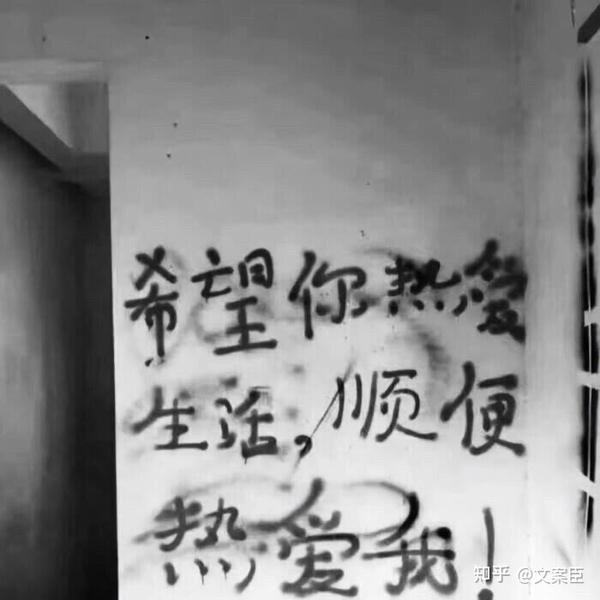 希望你热爱
生活,顺便
热爱我!
知乎 @文案臣